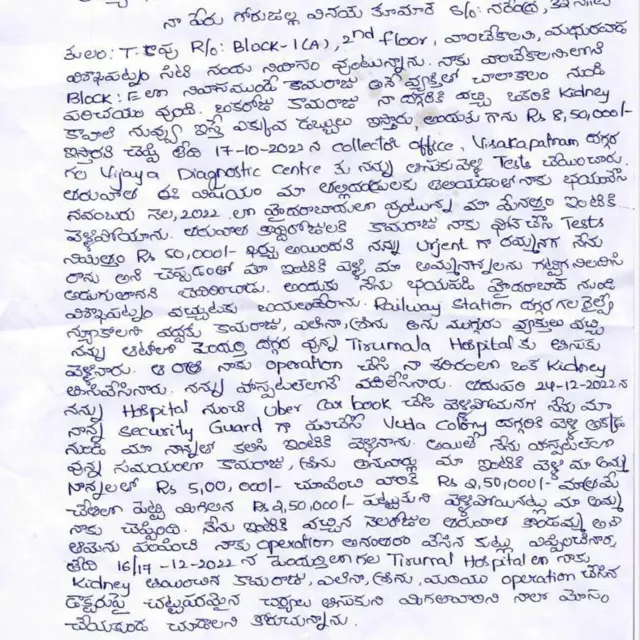 నా పేరు గోరుజల్ల వినయ్ కుమార్ S/o: నరేంద్ర,
కులం: T. కాపు R/o: Block-1(A), 2nd floor, వాంబేకాలని, మధురవాడ
విశాఖపట్నం సిటీ నందు నివాసం వుంటున్నాను. నాకు వాంబేకాలనిలోని
Block: E లో నివాసముండే కామరాజు అనే వ్యక్తితో చాలాకాలం నుండి
పరిచయం వుంది. ఒకరోజు కామరాజు నా దగ్గరికి వచ్చి ఒకరికి Kidney
కావాలి నువ్వు ఇస్తే ఎక్కువ డబ్బులు ఇస్తారు, అందుకు గాను Rs 8,50,000/-
ఇస్తారని చెప్పి తేది 17-10-2022 న collector office, Visakapatnam దగ్గర
గల Vijaya Diagnostic Centre కు నన్ను తీసుకువెళ్లి Tests చేయించారు.
తరువాత ఈ విషయం మా తల్లిదండ్రులకు తెలియడంతో నాకు భయంవేసి
నవంబరు నెల, 2022 లో హైదరాబాదులో వుంటున్న మా మేనత్త ఇంటికి
వెళ్లిపోయాను. తరువాత కొద్దిరోజులకి కామరాజు నాకు ఫోన్ చేసి Tests
నిమిత్తం Rs 50,000/- ఖర్చు అయిందని నన్ను Urjent గా రమ్మనగ నేను
రాను అని చెప్పడంతో మా ఇంటికి వెళ్లి మా అమ్మనాన్నలను గట్టిగా నిలదీసి
అడుగుతానని బెదిరించాడు. అందుకు నేను భయపడి హైదరాబాద్ నుండి
విశాఖపట్నం వచ్చుటకు బయలుదేరాను. Railway Station దగ్గర గల రైల్వే
న్యూకాలని వద్దకు కామరాజు, ఎలినా, శ్రీను అను ముగ్గురు వ్యక్తులు వచ్చి
నన్ను ఆటోలో పెందుర్తి దగ్గర వున్న Tirumala Hospital కు తీసుకు
వెళ్లినారు. ఆ రాత్రి నాకు operation చేసి నా శరీరంలో ఒక Kidney
తీసివేసినారు. నన్ను హాస్పటల్‌లోనే వదిలేసినారు. తదుపరి 24-12-2022 న
నన్ను Hospital నుంచి Uber Car book చేసి వెళ్లిపోమనగ నేను మా
నాన్న Security Guard గా పనిచేసే Vuda Colony దగ్గరికి వెళ్లి అక్కడ
నుండి మా నాన్నతో కలిసి ఇంటికి వెళ్లినాను. అయితే నేను హస్పటల్‌లో
వున్న సమయంలో కామరాజు, శ్రీను అనువాళ్లు మా ఇంటికి వెళ్లి మా అమ్మ
నాన్నలతో Rs 5,00,000/- చూపించి వారికి Rs 2,50,000/- మాత్రమే
చేతిలో పెట్టి మిగిలిన Rs 2,50,000/- పట్టుకుని వెళ్లిపోయినట్లు మా అమ్మ
నాకు చెప్పింది. నేను ఇంటికి వచ్చిన నెలరోజుల తరువాత కొండమ్మ అనే
ఆమెను పంపించి నాకు operation అనంతరం వేసిన కుట్లు విప్పించినారు.
తేది 16/17-12-2022 న పెందుర్తిలో గల Tirumal Hospital లో నాకు
Kidney తీయించిన కామరాజు, ఎలినా, శ్రీను, మరియు operation చేసిన
డాక్టరుపై చట్టపరమైన చర్యలు తీసుకుని మిగతావారిని నాలా మోసం
చేయకుండ చూడాలని కోరుచున్నాను.